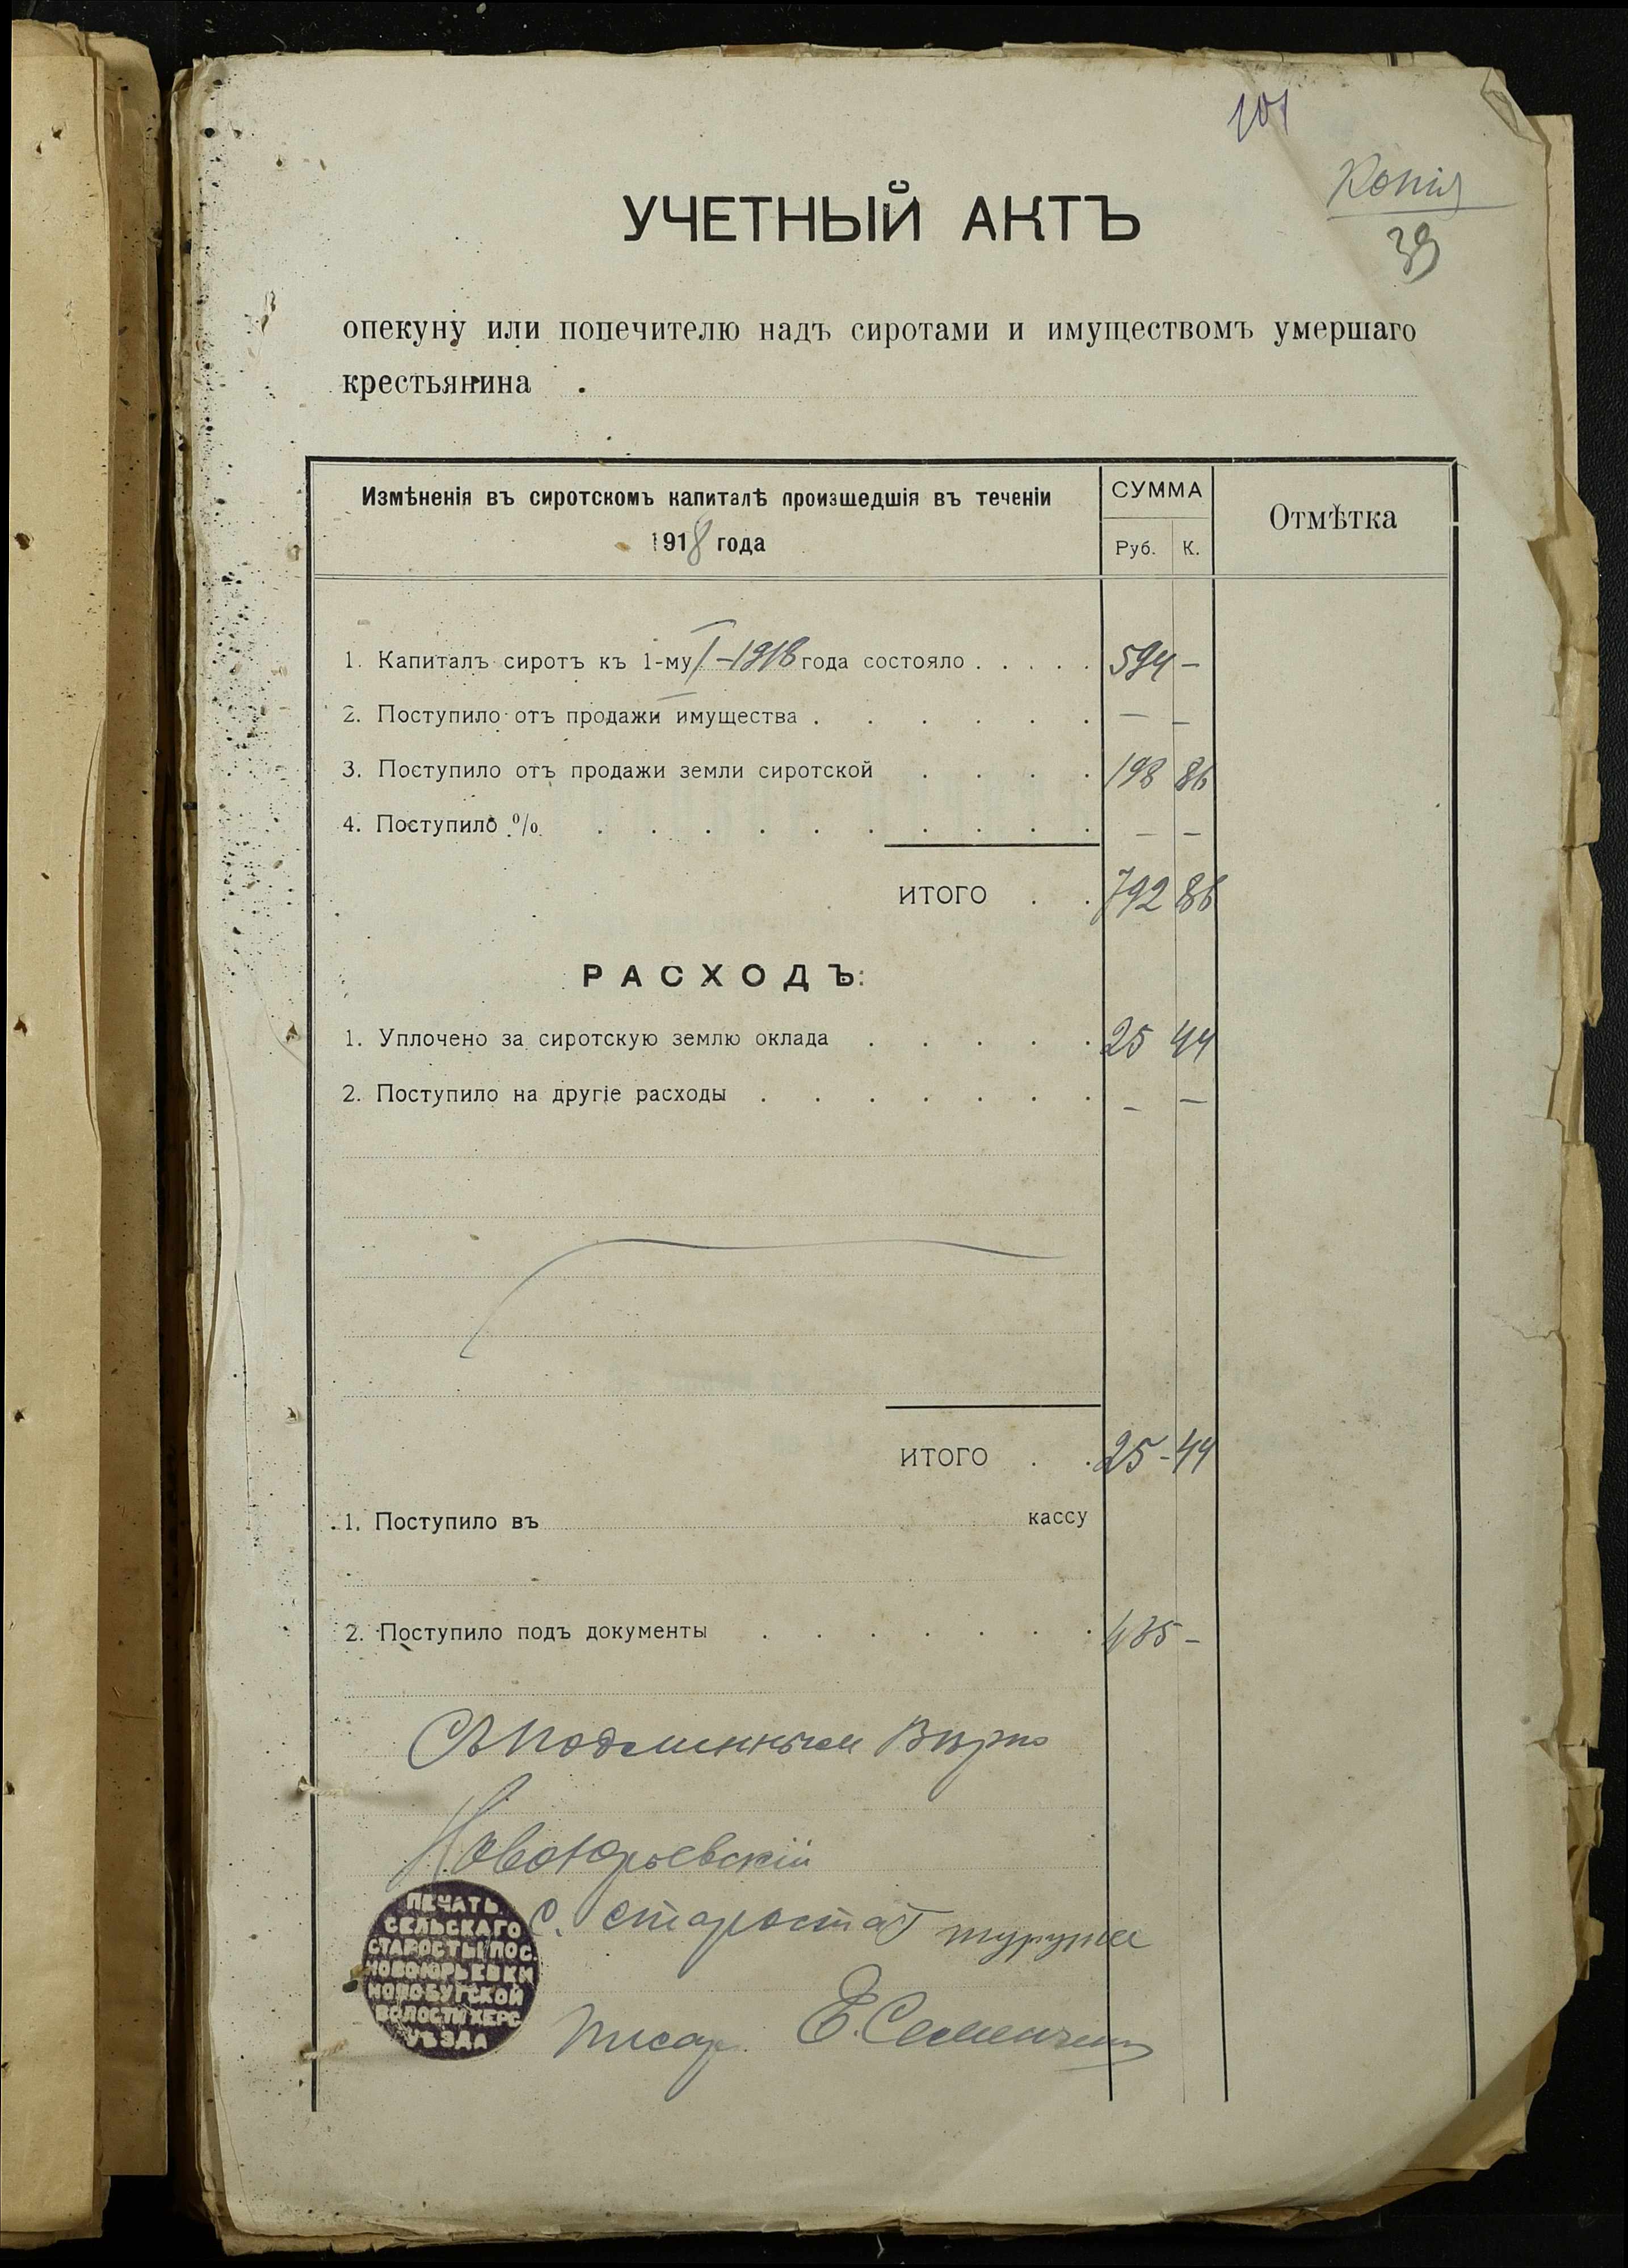 101
Копія
39
УЧЕТНЫЙ АКТЪ
опекуну или попечителю надъ сиротами и имуществомъ умершаго
крестьянина
Измѣненія въ сиротскомъ капиталѣ произшедшія въ теченіи
1918 года
СУММА
Руб. К.
Отмѣтка
1. Капиталъ сиротъ къ 1-му I – 1918 года состояло . . . . . 594 –
2. Поступило отъ продажи имущества . . . . . . – –
3. Поступило отъ продажи земли сиротской . . . . 198 86
4. Поступило % . . . . . . . . . . – –
ИТОГО . . 792 86
РАСХОДЪ:
1. Уплочено за сиротскую землю оклада . . . . . 25 44
2. Поступило на другіе расходы . . . . . . . – –
ИТОГО . . 25 - 44
1. Поступило въ кассу
2. Поступило подъ документы . . . . . . . 435 –
Съ подлиннымъ Вѣрно
Новоюрьевскій
С. староста
Писар. Е.
ПЕЧАТЬ
СЕЛЬСКАГО
СТАРОСТЫ ПОС.
НОВОЮРЬЕВКИ
НОВОБУГСКОЙ
ВОЛОСТИ ХЕРС
УѢЗДА